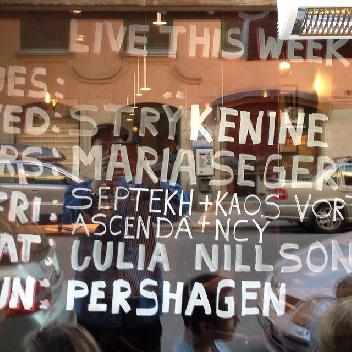 LIVE THIS WEEK
UES:
ED: STRÿKENINE
RS: MARIA SEGER
FRI: SEPTEKH + KAOS VOR
ASCENDA + NCY
AT: CULIA NILLSON
UN: PERSHAGEN